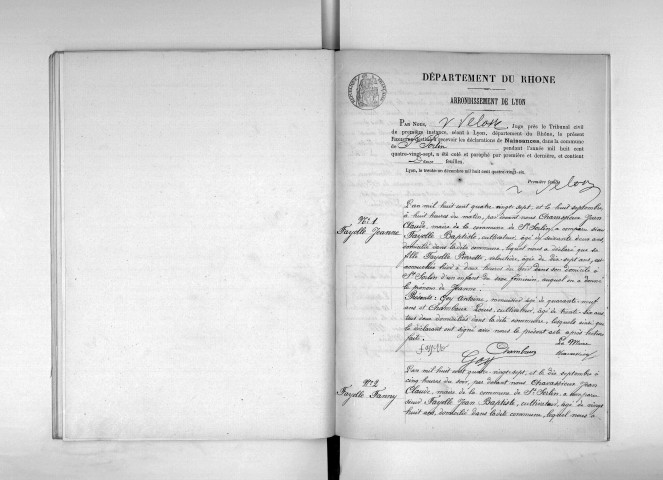 DÉPARTEMENT DU RHONE
ARRONDISSEMENT DE LYON
PAR NOUS, Juge près le Tribunal civil
de première instance, séant à Lyon, département du Rhône, le présent
recevoir les déclarations de Naissances, dans la commune
de St Sorlin pendant l'année mil huit cent
quatre-vingt-sept, a été coté et paraphé par première et dernière, et contient
feuilles.
Lyon, le trente un décembre mil huit cent quatre-vingt-six.
Première feuille
No 1
Fayolle Jeanne
L'an mil huit cent quatre-vingt-sept, et le huit septembre
à huit heures du matin, par devant nous Chavassieux Jean
Claude, maire de la commune de St Sorlin, a comparu sieur
Fayolle Baptiste, cultivateur, âgé de soixante deux ans,
domicilié dans ladite commune, lequel nous a déclaré que sa
fille Fayolle Pierrette, âgée de dix sept ans, est
accouchée hier à deux heures du soir dans son domicile à
St Sorlin d'un enfant du sexe féminin, auquel on a donné
le prénom de Jeanne.
Présents: Goy Antoine, menuisier, âgé de quarante-neuf
ans et Chambaux Louis, cultivateur, âgé de trente-six ans
tous deux domiciliés dans ladite commune, lesquels ainsi que
le déclarant ont signé avec nous le présent acte après lecture
faite.
Le Maire
Goy
No 2
Fayolle Fanny
L'an mil huit cent quatre-vingt-sept, et le dix septembre à
cinq heures du soir, par devant nous Chavassieux Jean
Claude, maire de la commune de St Sorlin, a comparu
sieur Fayolle Jean Baptiste, cultivateur, âgé de vingt
huit ans, domicilié dans ladite commune, lequel nous a